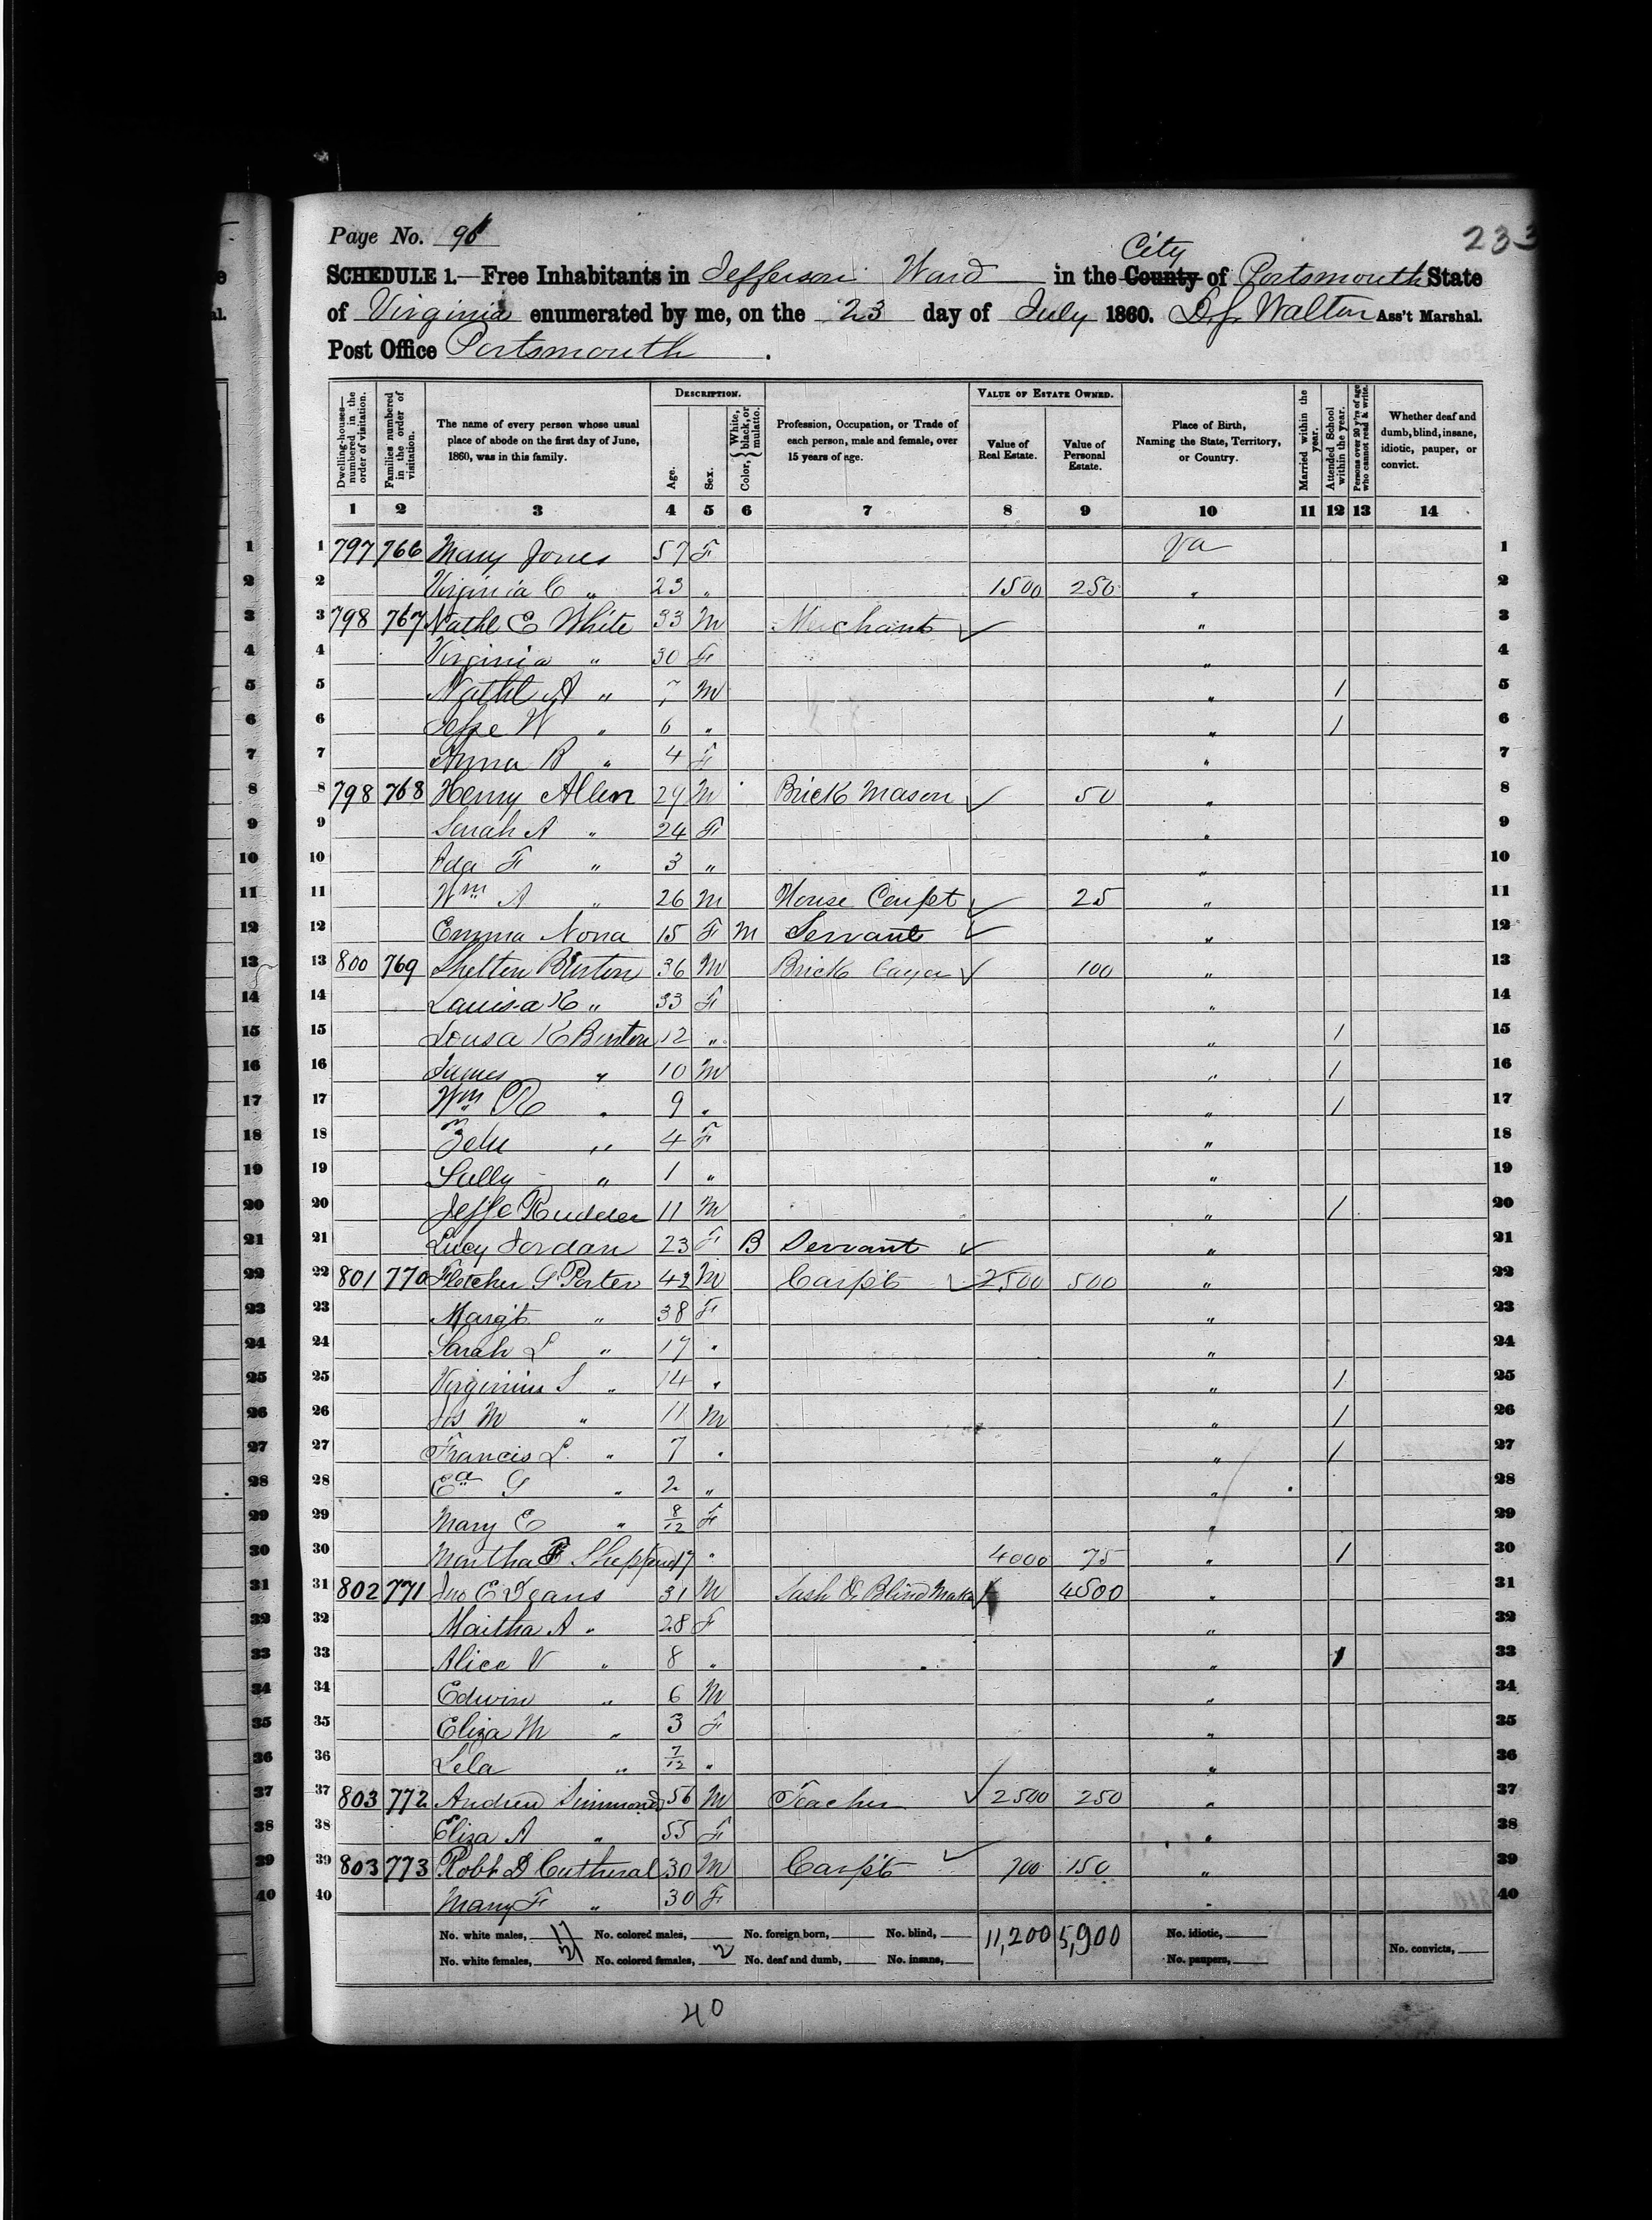 Page No. 96
233
SCHEDULE 1.—Free Inhabitants in Jefferson Ward in the County City of Portsmouth State
of Virginia enumerated by me, on the 23 day of July 1860. D. J. Walton Ass't Marshal.
Post Office Portsmouth.
Dwelling-houses—numbered in the order of visitation. Families numbered in the order of visitation. The name of every person whose usual place of abode on the first day of June, 1860, was in this family. DESCRIPTION. Age. Sex. Color, { White, black, or mulatto. Profession, Occupation, or Trade of each person, male and female, over 15 years of age. VALUE OF ESTATE OWNED. Value of Real Estate. Value of Personal Estate. Place of Birth, Naming the State, Territory, or Country. Married within the year. Attended School within the year. Persons over 20 y'rs of age who cannot read & write. Whether deaf and dumb, blind, insane, idiotic, pauper, or convict.
1 2 3 4 5 6 7 8 9 10 11 12 13 14
1 797 766 Mary Jones 57 F Va 1
2 Virginia C " 23 " 1500 250 " 2
3 798 767 Nathl E White 33 M Merchant " 3
4 Virginia " 30 F " 4
5 Nathl A " 7 M " / 5
6 Jesse W " 6 " " / 6
7 Anna R " 4 F " 7
8 798 768 Henry Allen 29 M Brick Mason 50 " 8
9 Sarah A " 24 F " 9
10 Ida F " 3 " " 10
11 Wm A " 26 M House Carpt 25 " 11
12 Emma Nona 15 F M Servant " 12
13 800 769 Shelton Burton 36 M Brick Layer 100 " 13
14 Louisa K " 33 F " 14
15 Lousa K Burton 12 " " / 15
16 James " 10 M " / 16
17 Wm R " 9 " " / 17
18 " 4 F " 18
19 Sally " 1 " " 19
20 Jesse Rudder 11 M " / 20
21 Lucy Jordan 23 F B Servant " 21
22 801 770 Fletcher G Porter 42 M Carpt 2500 500 " 22
23 Margt " 38 F " 23
24 Sarah L " 17 " " 24
25 Virginius S " 14 " " / 25
26 Jos M " 11 M " / 26
27 Francis L " 7 " " / 27
28 Ea G " 2 " " 28
29 Mary E " 8/12 F " 29
30 Martha F Sheppard 17 " 4000 75 " / 30
31 802 771 Jno E Deans 31 M Sash & Blind Maker 4500 " 31
32 Martha A " 28 F " 32
33 Alice V " 8 " " 1 33
34 Edwin " 6 M " 34
35 Eliza M " 3 F " 35
36 Lela " 7/12 " " 36
37 803 772 Andrew Simmons 56 M Teacher 2500 250 " 37
38 Eliza A " 55 F " 38
39 803 773 Robt D Cutheral 30 M Carpt 700 150 " 39
40 Mary F " 30 F " 40
No. white males, 17 No. colored males, No. foreign born, No. blind, 11,200 5,900 No. idiotic,
No. white females, 21 No. colored females, 2 No. deaf and dumb, No. insane, No. paupers, No. convicts,
40